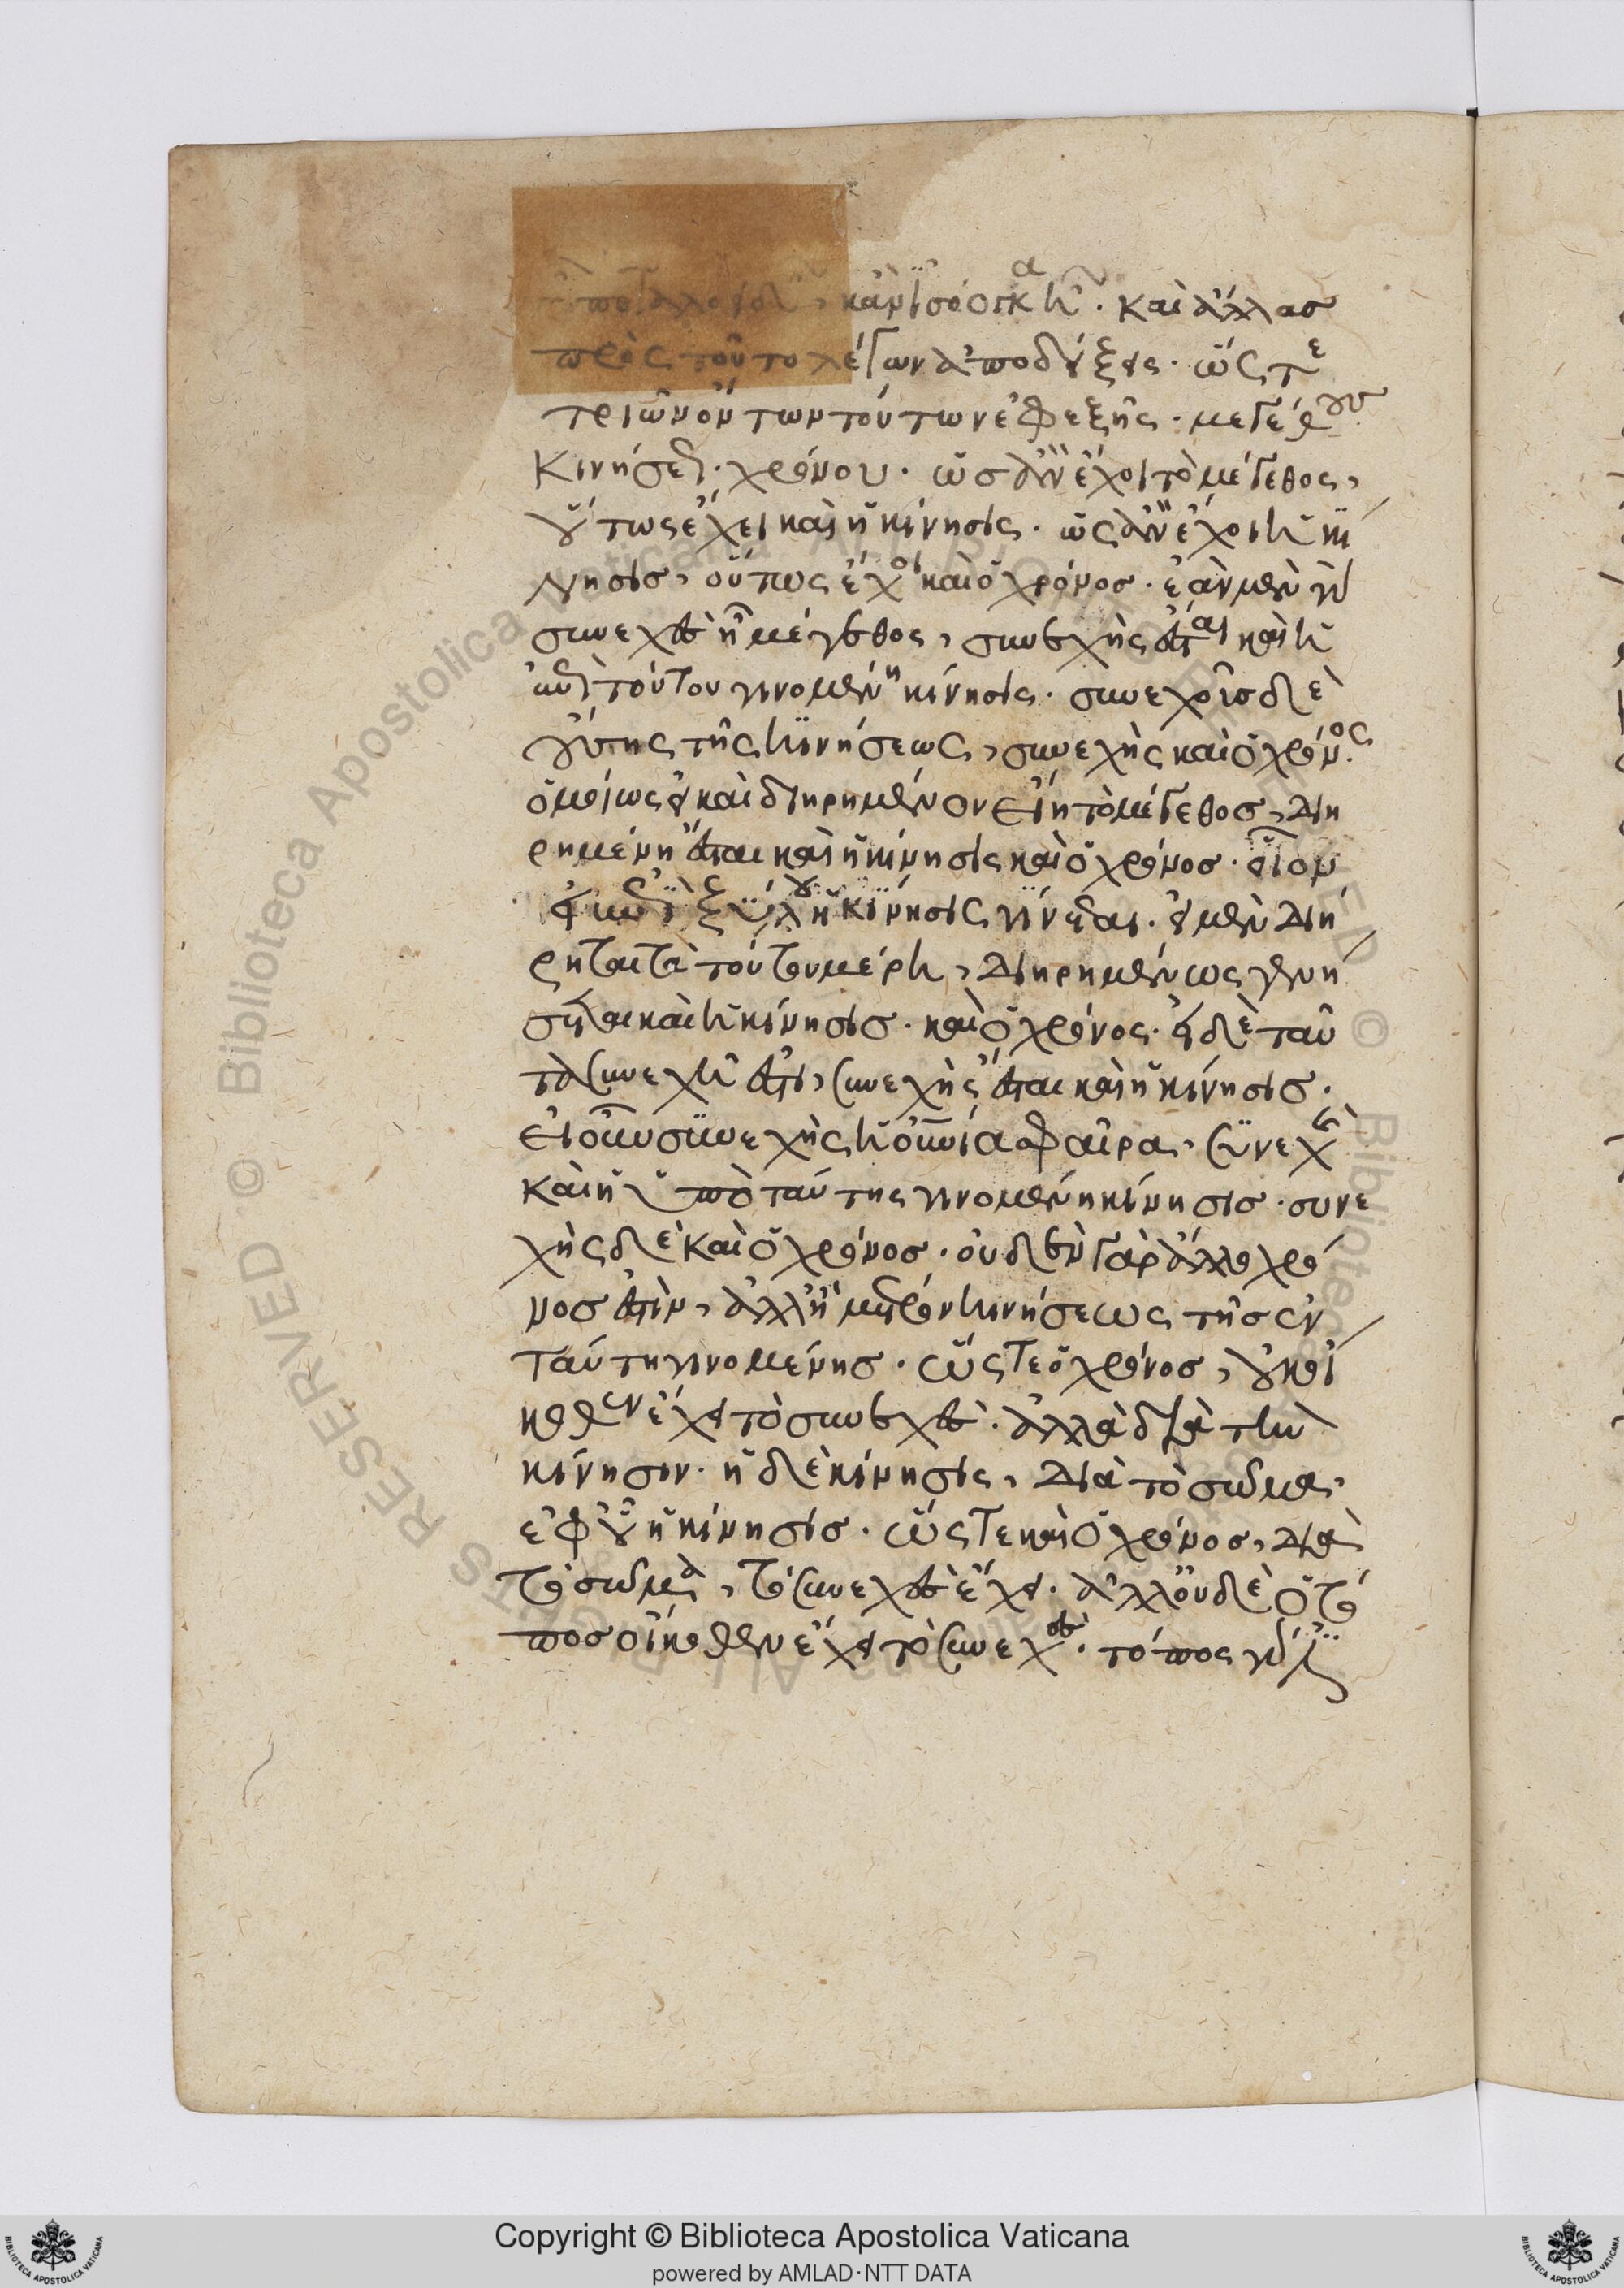 κἂν ἰσοσκελῆ · καὶ ἄλλας
πρὸς τοῦτο λέγων ἀποδείξεις · ὥστε
τριῶν ὄντων τούτων ἐφεξῆς · μεγέθους
κινήσεως · χρόνου · ὡς ἂν ἔχοι τὸ μέγεθος,
οὕτως ἔχει καὶ ἡ κίνησις · ὡς ἂν ἔχοι ἡ κί
νησις, οὕτως ἔχοι καὶ ὁ χρόνος · ἐὰν μὲν οὖν
συνεχὲς ᾖ μέγεθος, συνεχὴς ἔσται καὶ ἡ
ἐπὶ τούτου γινομένη κίνησις · συνεχοῦς δὲ
οὔσης τῆς κινήσεως, συνεχὴς καὶ ὁ χρόνος.
ὁμοίως εἰ καὶ διῃρημένον εἴη τὸ μέγεθος, διῃ
ρημένη ἔσται καὶ ἡ κίνησις καὶ ὁ χρόνος · οἷον
εἰ ἐπὶ ξύλου ἡ κίνησις γίνεται · εἰ μὲν διῄ
ρηται τὰ τούτου μέρη, διῃρημένως γενή
σεται καὶ ἡ κίνησις · καὶ ὁ χρόνος · εἰ δὲ ταῦ
τα συνεχῆ ἐστι, συνεχὴς ἔσται καὶ ἡ κίνησις ·
εἰ οὖν συνεχὴς ἡ οὐρανία σφαῖρα, συνεχὴς
καὶ ἡ ὑπὸ ταύτης γινομένη κίνησις · συνε
χὴς δὲ καὶ ὁ χρόνος · οὐδὲν γὰρ ἄλλο χρό
νος ἐστὶν, ἀλλ' ἢ μέτρον κινήσεως τῆς ἐν
ταύτῃ γινομένης · ὥστε ὁ χρόνος, οὐκ οἴ
κοθεν ἔχει τὸ συνεχὲς · ἀλλὰ διὰ τὴν
κίνησιν · ἡ δὲ κίνησις, διὰ τὸ σῶμα,
ἐφ' οὗ ἡ κίνησις · ὥστε καὶ ὁ χρόνος, διὰ
τὸ σῶμα, τὸ συνεχὲς ἔχει · ἀλλ' οὐδὲ ὁ τό
πος οἴκοθεν ἔχει τὸ συνεχὲς · τόπος γάρ ἐστι
Copyright © Biblioteca Apostolica Vaticana
powered by AMLAD·NTT DATA